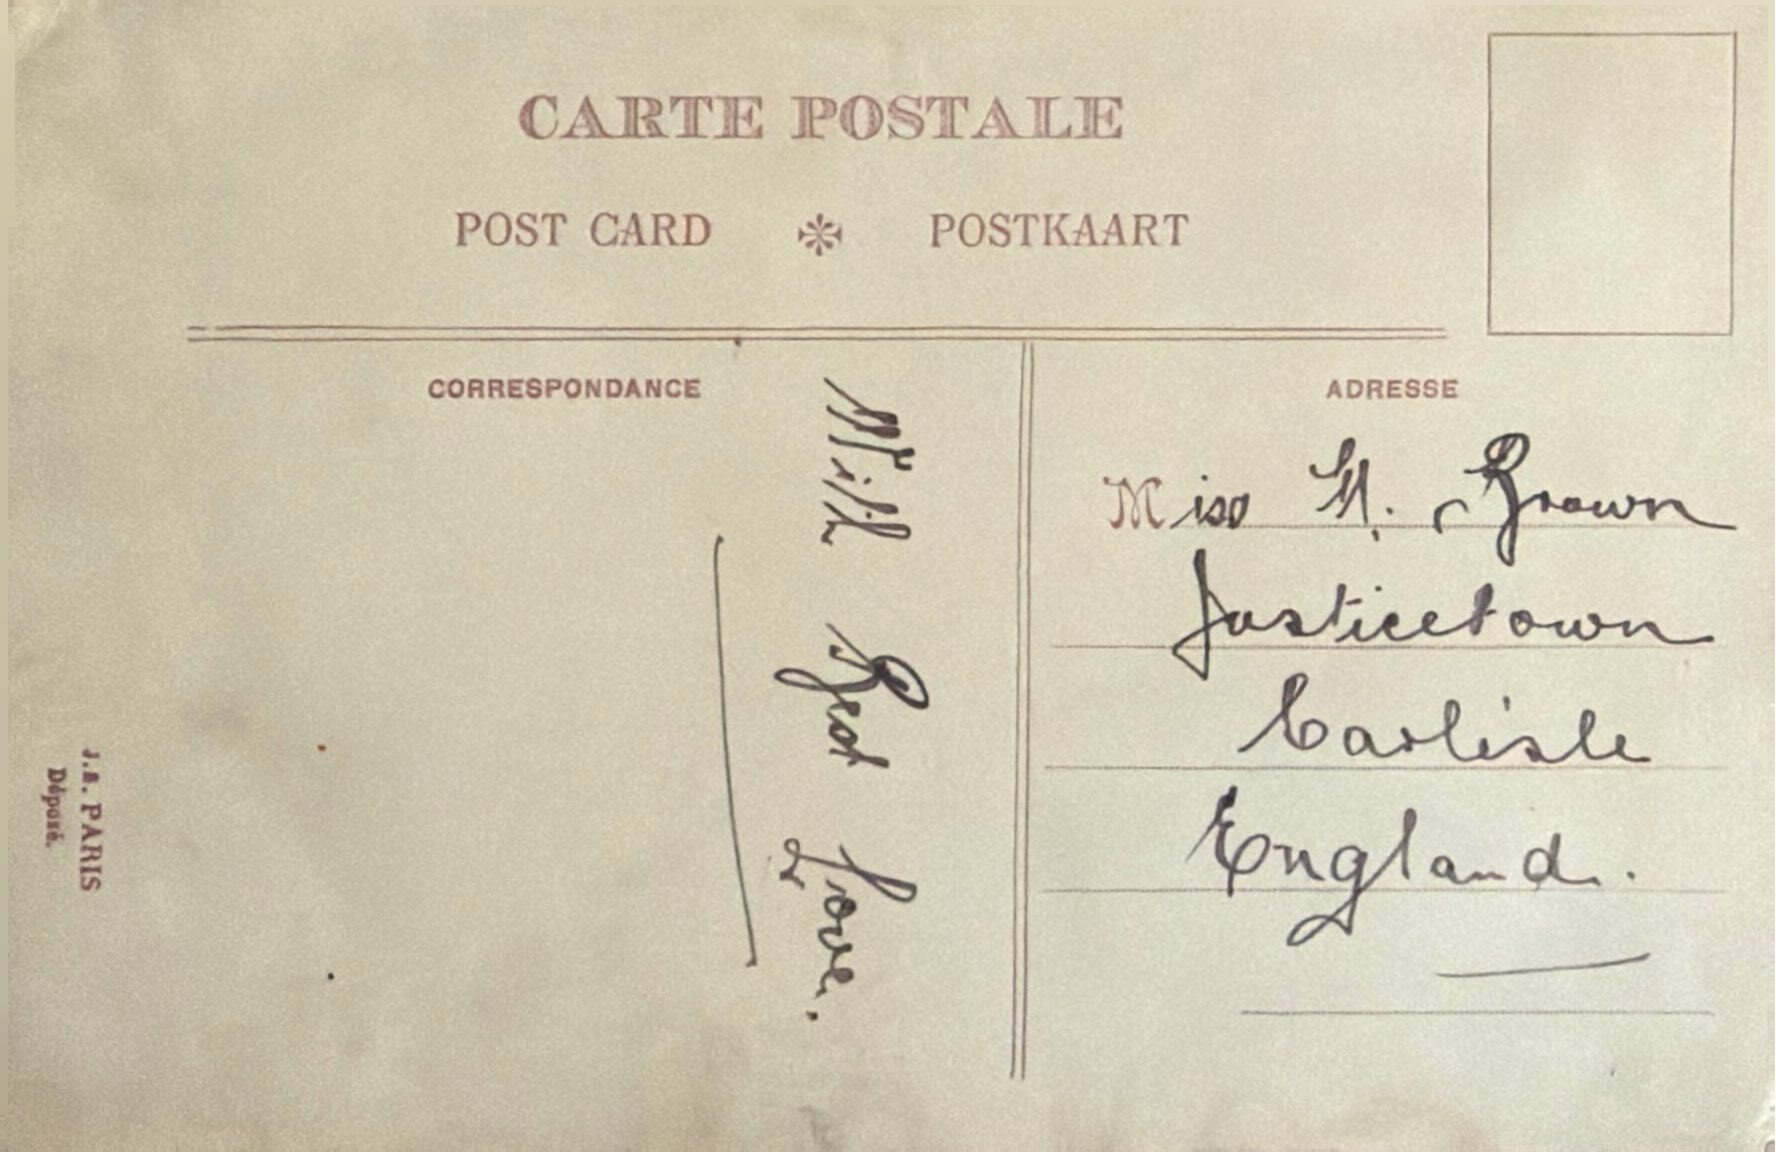 CARTE POSTALE
POST CARD POSTKAART
CORRESPONDANCE
With Best Love.
ADRESSE
Miss M. Brown
Justicetown
Carlisle
England.
J.S. PARIS
Déposé.